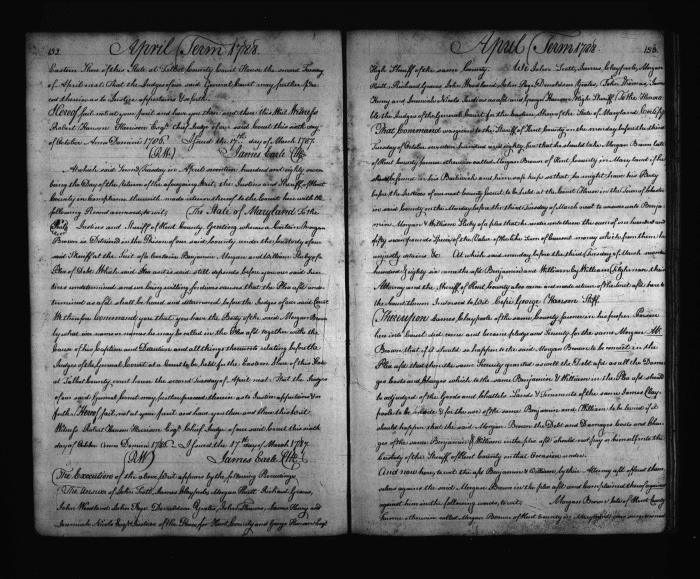 April Term 1788.
Eastern Shore of this State at Talbot County Court House the second Tuesday
of April next. That the Judges of our said General Court may further pro
ceed therein as to Justice appertains &
Hereof fail not at your peril and have you then and there this Writ. Witness
Robert Hanson Harrison Esqr. Chief Judge of our said Court this sixth day
of October Anno Domini 1786. Issued the 17th day of March 1787.
James Earle Clk.
At which said Second Tuesday in April seventeen hundred and eighty seven
being the Day of the Return of the aforegoing Writ, the Justices and Sheriff of Kent
County in Compliance therewith made return thereof to the Court here with the
following Record annexed, to wit, The State of Maryland To the
Justices and Sheriff of Kent County Greeting whereas a Certain Morgan
Brown is Detained in the Prison of our said County under the Custody of our
said Sheriff at the Suit of a certain Benjamin Morgan and William
Plea of Debt Which said Plea as it is said still depends before you our said Jus
tices undetermined and we being willing for divers causes that the Plea afsd. un
termined as afsd. shall be heard and determined before the Judges of our said Court
We therefore Command you, that you have the Body of the said Morgan Brown
by what ever name or names he may be called in the Plea afsd. together with the
cause of his Caption and Detention and all things thereunto relating before the
Judges of the General Court at a Court to be held for the Eastern Shore of this State
at Talbot County Court house the second Tuesday of April next. That the Judges
of our said General Court may further proceed therein as to Justice appertains &
Hereof fail not at your peril and have you then and there this writ.
Witness Robert Hanson Harrison Esqr. Chief Judge of our said Court this sixth
day of October Anno Domini 1786. Issued the 17th day of March 1787.
James Earle Clk.
The Execution of the above Writ appears by the following Proceedings
The Answer of John Scott, James Claypoole, Morgan Hurtt Richard Graves,
John Woodland John Page Donaldson Yeates, John Thomas, James Henry and
Jeremiah Nicols Esqrs. Justices of the Peace for Kent County and George Hanson Esqr.
April Term 1788.
High Sheriff of the same County. We John Scott, James Claypoole, Morgan
Hurtt, Richard Graves, John Woodland John Page Donaldson Yeates, John Thomas, James
Henry and Jeremiah Nicols Justices as afsd. and George Hanson High Sheriff, To the Honora
ble the Judges of the General Court for the Eastern Shore of the State of Maryland
That Command was given to the Sheriff of Kent County on the monday before the third
Tuesday of October seventeen hundred and eighty five that he should take Morgan Brown late
of Kent County farmer otherwise called Morgan Brown of Kent County in Maryland if he
should be found in his Bailiwick and him safe keep so that he might have his Body
before the Justices of our next County Court to be held at the Court House in the Town of Chester
in said County on the Monday before the third Tuesday of March next to answer unto Benja
min Morgan & William of a plea that he render unto them the sum of one hundred and
fifty seven pounds Specie of the Value of current money which from them he
unjustly detains & At which said monday before the third Tuesday of March seventeen
hundred & eighty six came the afsd. Benjamin and William by William their
Attorney and the Sheriff of Kent County also came and made return of the Writ afsd. have to
the Court thereon Indorsed to Wit Cepi George Hanson Shff.
Thereupon James Claypoole of the same County farmer in his proper Person
here into Court did come and became pledge and Security for the same Morgan
Brown, that if it should so happen to the said Morgan Brown to be convict in the
Plea afsd. that then the same Security granted as well the Debt afsd. as all the Dama
ges Costs and Charges which to the same Benjamin & William in the Plea afsd. should
be adjudged of the Goods and Chattels Lands & Tenements of the same James Clay
poole to be made & for the use of the same Benjamin and William to be levied if it
should happen that the said Morgan Brown the Debt and Damages Costs and Char
ges of the same Benjamin & William in the plea afsd. should not pay or himself to the
Custody of the Sheriff of Kent County in that Occasion render.
And now here, to wit, the afsd. Benjamin & William, by their Attorney afsd. offered them
selves against the said Morgan Brown in the plea afsd. and Complained thereof against
against him in the following words, to wit Morgan Brown late of Kent County
farmer otherwise called Morgan Brown of Kent County in Maryland